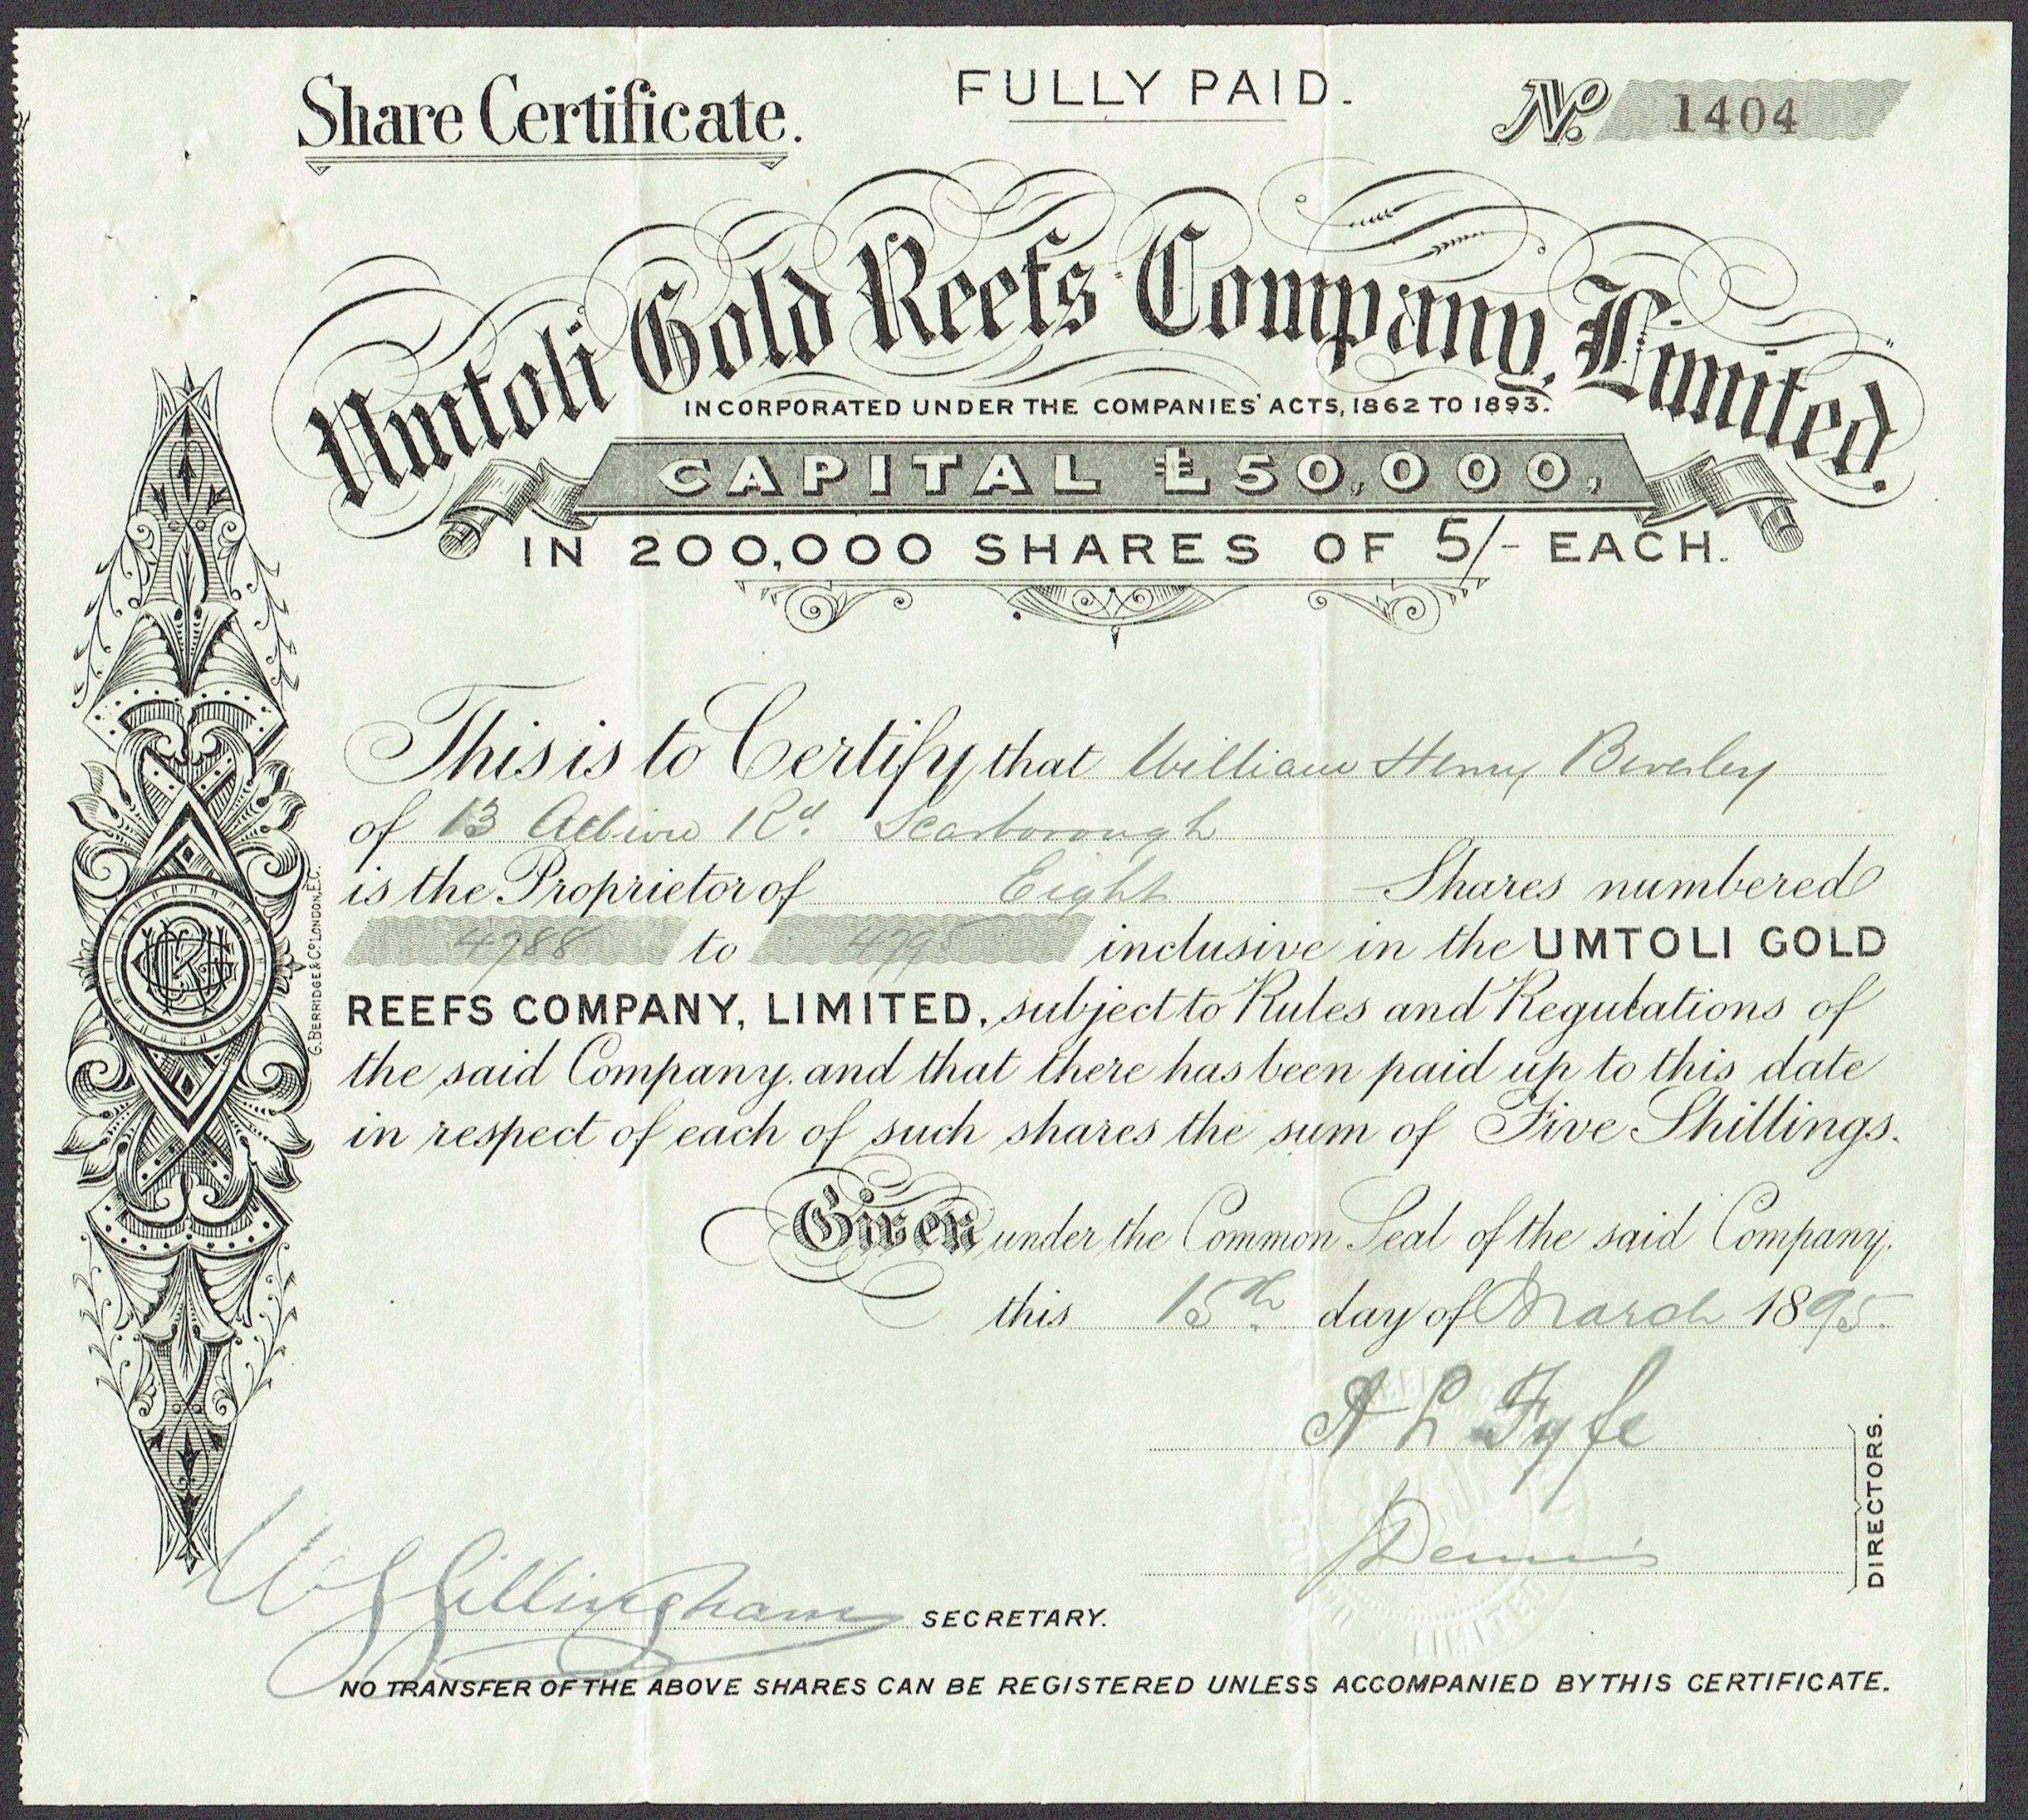 Share Certificate.
FULLY PAID.
No. 1404
Umtoli Gold Reefs Company, Limited.
INCORPORATED UNDER THE COMPANIES' ACTS, 1862 TO 1893.
CAPITAL £50,000,
IN 200,000 SHARES OF 5/- EACH.
This is to Certify that William Henry Beverley
of 13 Albion Rd. Scarborough
is the Proprietor of Eight Shares numbered
4788 to 4795 inclusive in the UMTOLI GOLD
REEFS COMPANY, LIMITED, subject to Rules and Regulations of
the said Company, and that there has been paid up to this date
in respect of each of such shares the sum of Five Shillings.
Given under the Common Seal of the said Company,
this 15th day of March 1895.
A L Fyfe
J Dennis
DIRECTORS.
W S Gillingham SECRETARY.
NO TRANSFER OF THE ABOVE SHARES CAN BE REGISTERED UNLESS ACCOMPANIED BY THIS CERTIFICATE.
G. BERRIDGE & CO. LONDON, E.C.
LIMITED